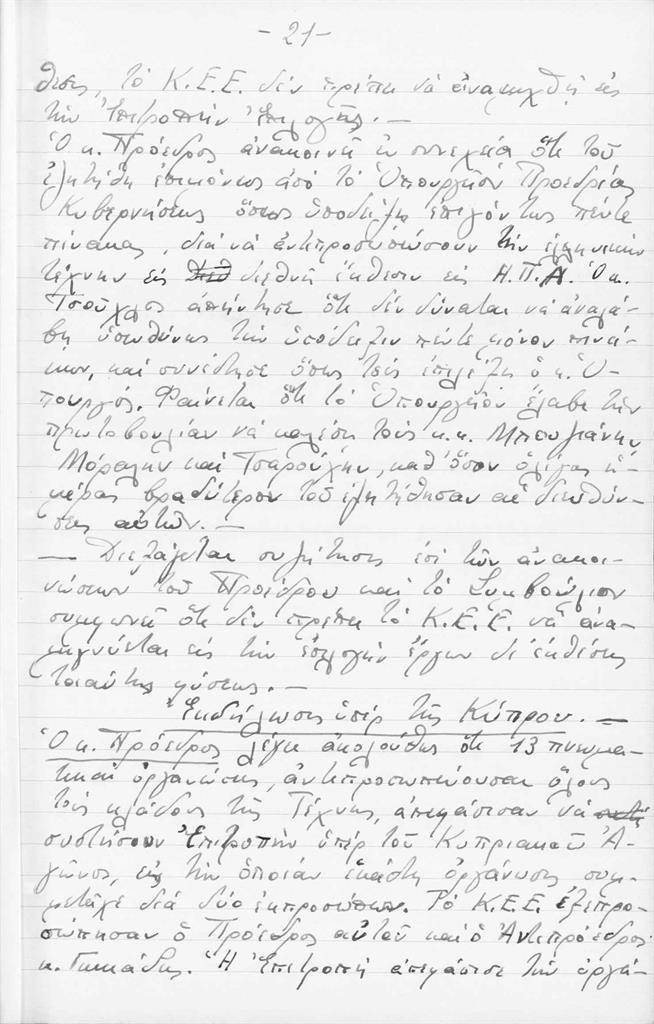 - 21 -
θεσης, τό Κ.Ε.Ε. δέν πρέπει νά ἀναμιχθῇ εἰς
τήν Ἐπιτροπήν Ἐπιλογῆς. —
Ὁ κ. Πρόεδρος ἀνακοινεῖ ἐν συνεχείᾳ ὅτι τοῦ
ἐζητήθη ἐπιμόνως ἀπό τό Ὑπουργεῖον Προεδρίας
Κυβερνήσεως ὅπως ὑποδείξῃ ἐπειγόντως πέντε
πίνακας, διά νά ἀντιπροσωπεύσουν τήν ἑλληνικήν
τέχνην εἰς διεθνῆ ἔκθεσιν εἰς Η.Π.Α. Ὁ κ.
Τσοῦχλος ἀπήντησε ὅτι δέν δύναται νά ἀναλά-
βῃ ὑπευθύνως τήν ὑπόδειξιν πέντε μόνον πινά-
κων, καί συνέστησε ὅπως τούς ἐπιλέξῃ ὁ κ. Ὑ-
πουργός. Φαίνεται ὅτι τό Ὑπουργεῖον ἔλαβε τήν
πρωτοβουλίαν νά καλέσῃ τούς κ.κ. Μπουζιάνην,
Μόραλην καί Τσαρούχην, καθ' ὅσον ὀλίγας ἡ-
μέρας βραδύτερον τοῦ ἐζητήθησαν αἱ διευθύν-
σεις αὐτῶν. —
— Διεξάγεται συζήτησις ἐπί τῶν ἀνακοι-
νώσεων τοῦ Προέδρου καί τό Συμβούλιον
συμφωνεῖ ὅτι δέν πρέπει τό Κ.Ε.Ε. νά ἀνα-
μιγνύεται εἰς τήν ἐπιλογήν ἔργων δι' ἐκθέσεις
τοιαύτης φύσεως. —
Ἐκδήλωσις ὑπέρ τῆς Κύπρου. —
Ὁ κ. Πρόεδρος λέγει ἀκολούθως ὅτι 13 πνευμα-
τικαί ὀργανώσεις, ἀντιπροσωπεύουσαι ὅλους
τούς κλάδους τῆς Τέχνης, ἀπεφάσισαν νά
συστήσουν Ἐπιτροπήν ὑπέρ τοῦ Κυπριακοῦ Ἀ-
γῶνος, εἰς τήν ὁποίαν ἑκάστη ὀργάνωσις συμ-
μετέχει διά δύο ἐκπροσώπων. Τό Κ.Ε.Ε. ἐξεπρο-
σώπησαν ὁ Πρόεδρος αὐτοῦ καί ὁ Ἀντιπρόεδρος
κ. Γκικάδης. Ἡ Ἐπιτροπή ἀπεφάσισε τήν ὀργά-